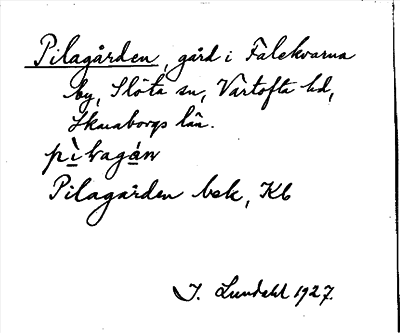 Pilagården, gård i Falekvarna
by, Slöta sn, Vartofta hd,
Skaraborgs län.
pìlagán
Pilagården bek, Kb
I. Lundahl 1927.